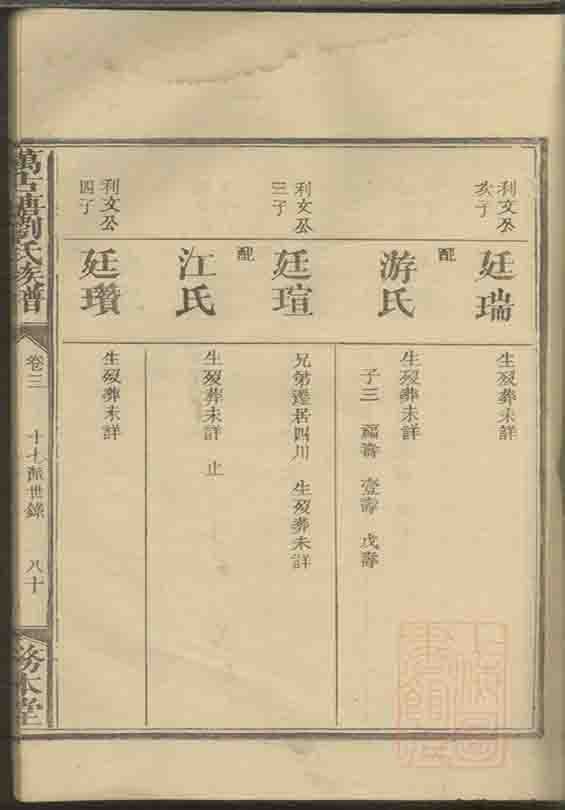 利文公
次子
廷瑞
生歿葬未詳
配
游氏
生歿葬未詳
子三 福壽 壹壽 戊壽
利文公
三子
廷瑄
兄弟遷居四川 生歿葬未詳
配
江氏
生歿葬未詳 止
利文公
四子
廷瓚
生歿葬未詳
萬古塘劉氏族譜
卷三
十七派世錄
八十
務本堂